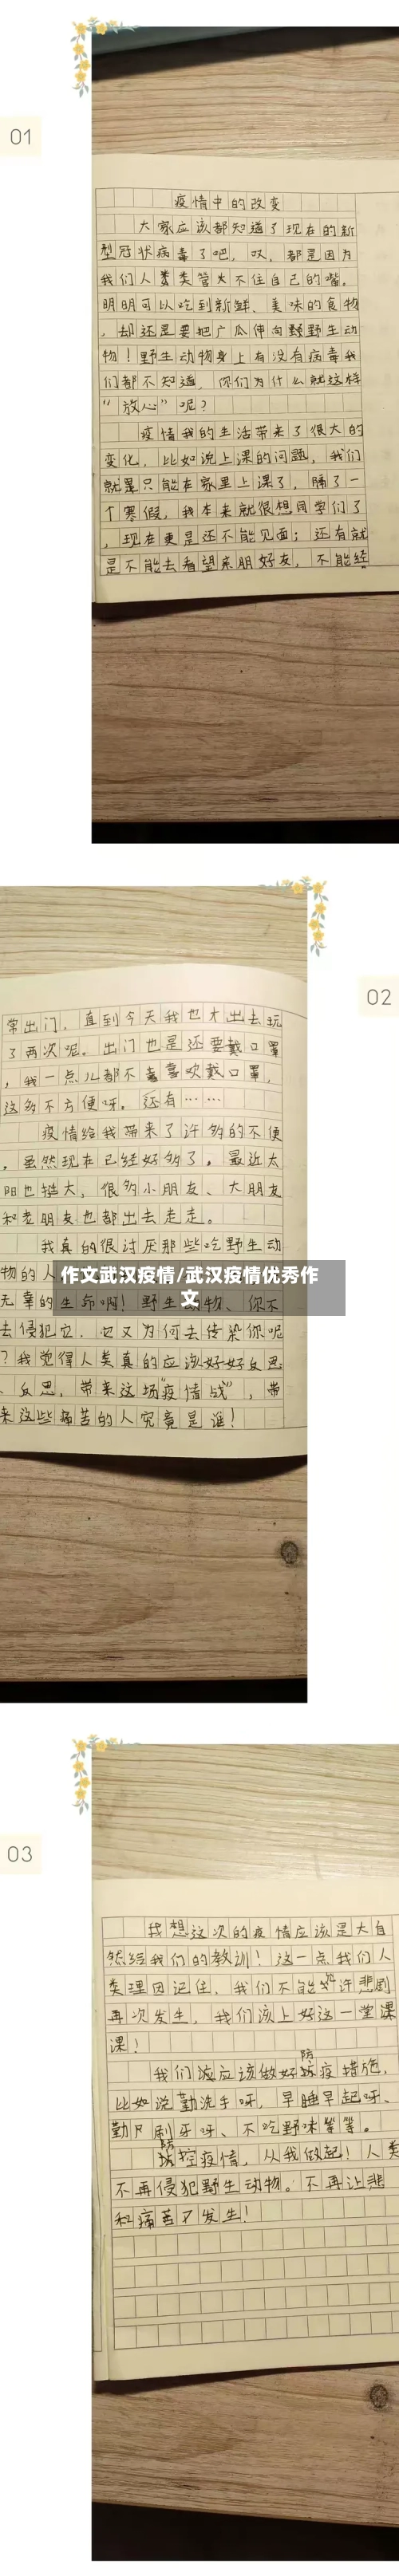 01
疫情中的改变
大家应该都知道了现在的新
型冠状病毒了吧，哎，都是因为
我们人类管不住自己的嘴。
明明可以吃到新鲜、美味的食物
，却还是要把广瓜伸向野生动
物！野生动物身上有没有病毒我
们都不知道，你们为什么就这样
“放心”呢？
疫情我的生活带来了很大的
变化，比如说上课的问题，我们
就是只能在家里上课了，隔了一
个寒假，我本来就很想同学们了
，现在更是还不能见面；还有就
是不能去看望亲朋好友，不能经
02
常出门，直到今天我也才出去玩
了两次呢。出门也是还要戴口罩
，我一点儿都不喜欢戴口罩，
这多不方便呀。还有……
疫情给我带来了许多的不便
，虽然现在已经好多了，最近太
阳也挺大，很多小朋友、大朋友
和老朋友也都出去走走。
我真的很讨厌那些吃野生动
物的人
作文武汉疫情/武汉疫情优秀作
文
无辜的生命啊！野生动物、你不
去侵犯它，它又为何去传染你呢
？我觉得人类真的应该好好反思
、反思，带来这场“疫情战”，带
来这些痛苦的人究竟是谁！
03
我想这次的疫情应该是大自
然给我们的教训！这一点我们人
类理因记住，我们不能允许悲剧
再次发生，我们该上好这一堂课
课！
我们应该做好防疫措施，
比如说勤洗手呀，早睡早起呀、
勤尺刷牙呀、不吃野味等等。
防控疫情，从我做起！人类
不再侵犯野生动物。不再让悲
和痛苦发生！